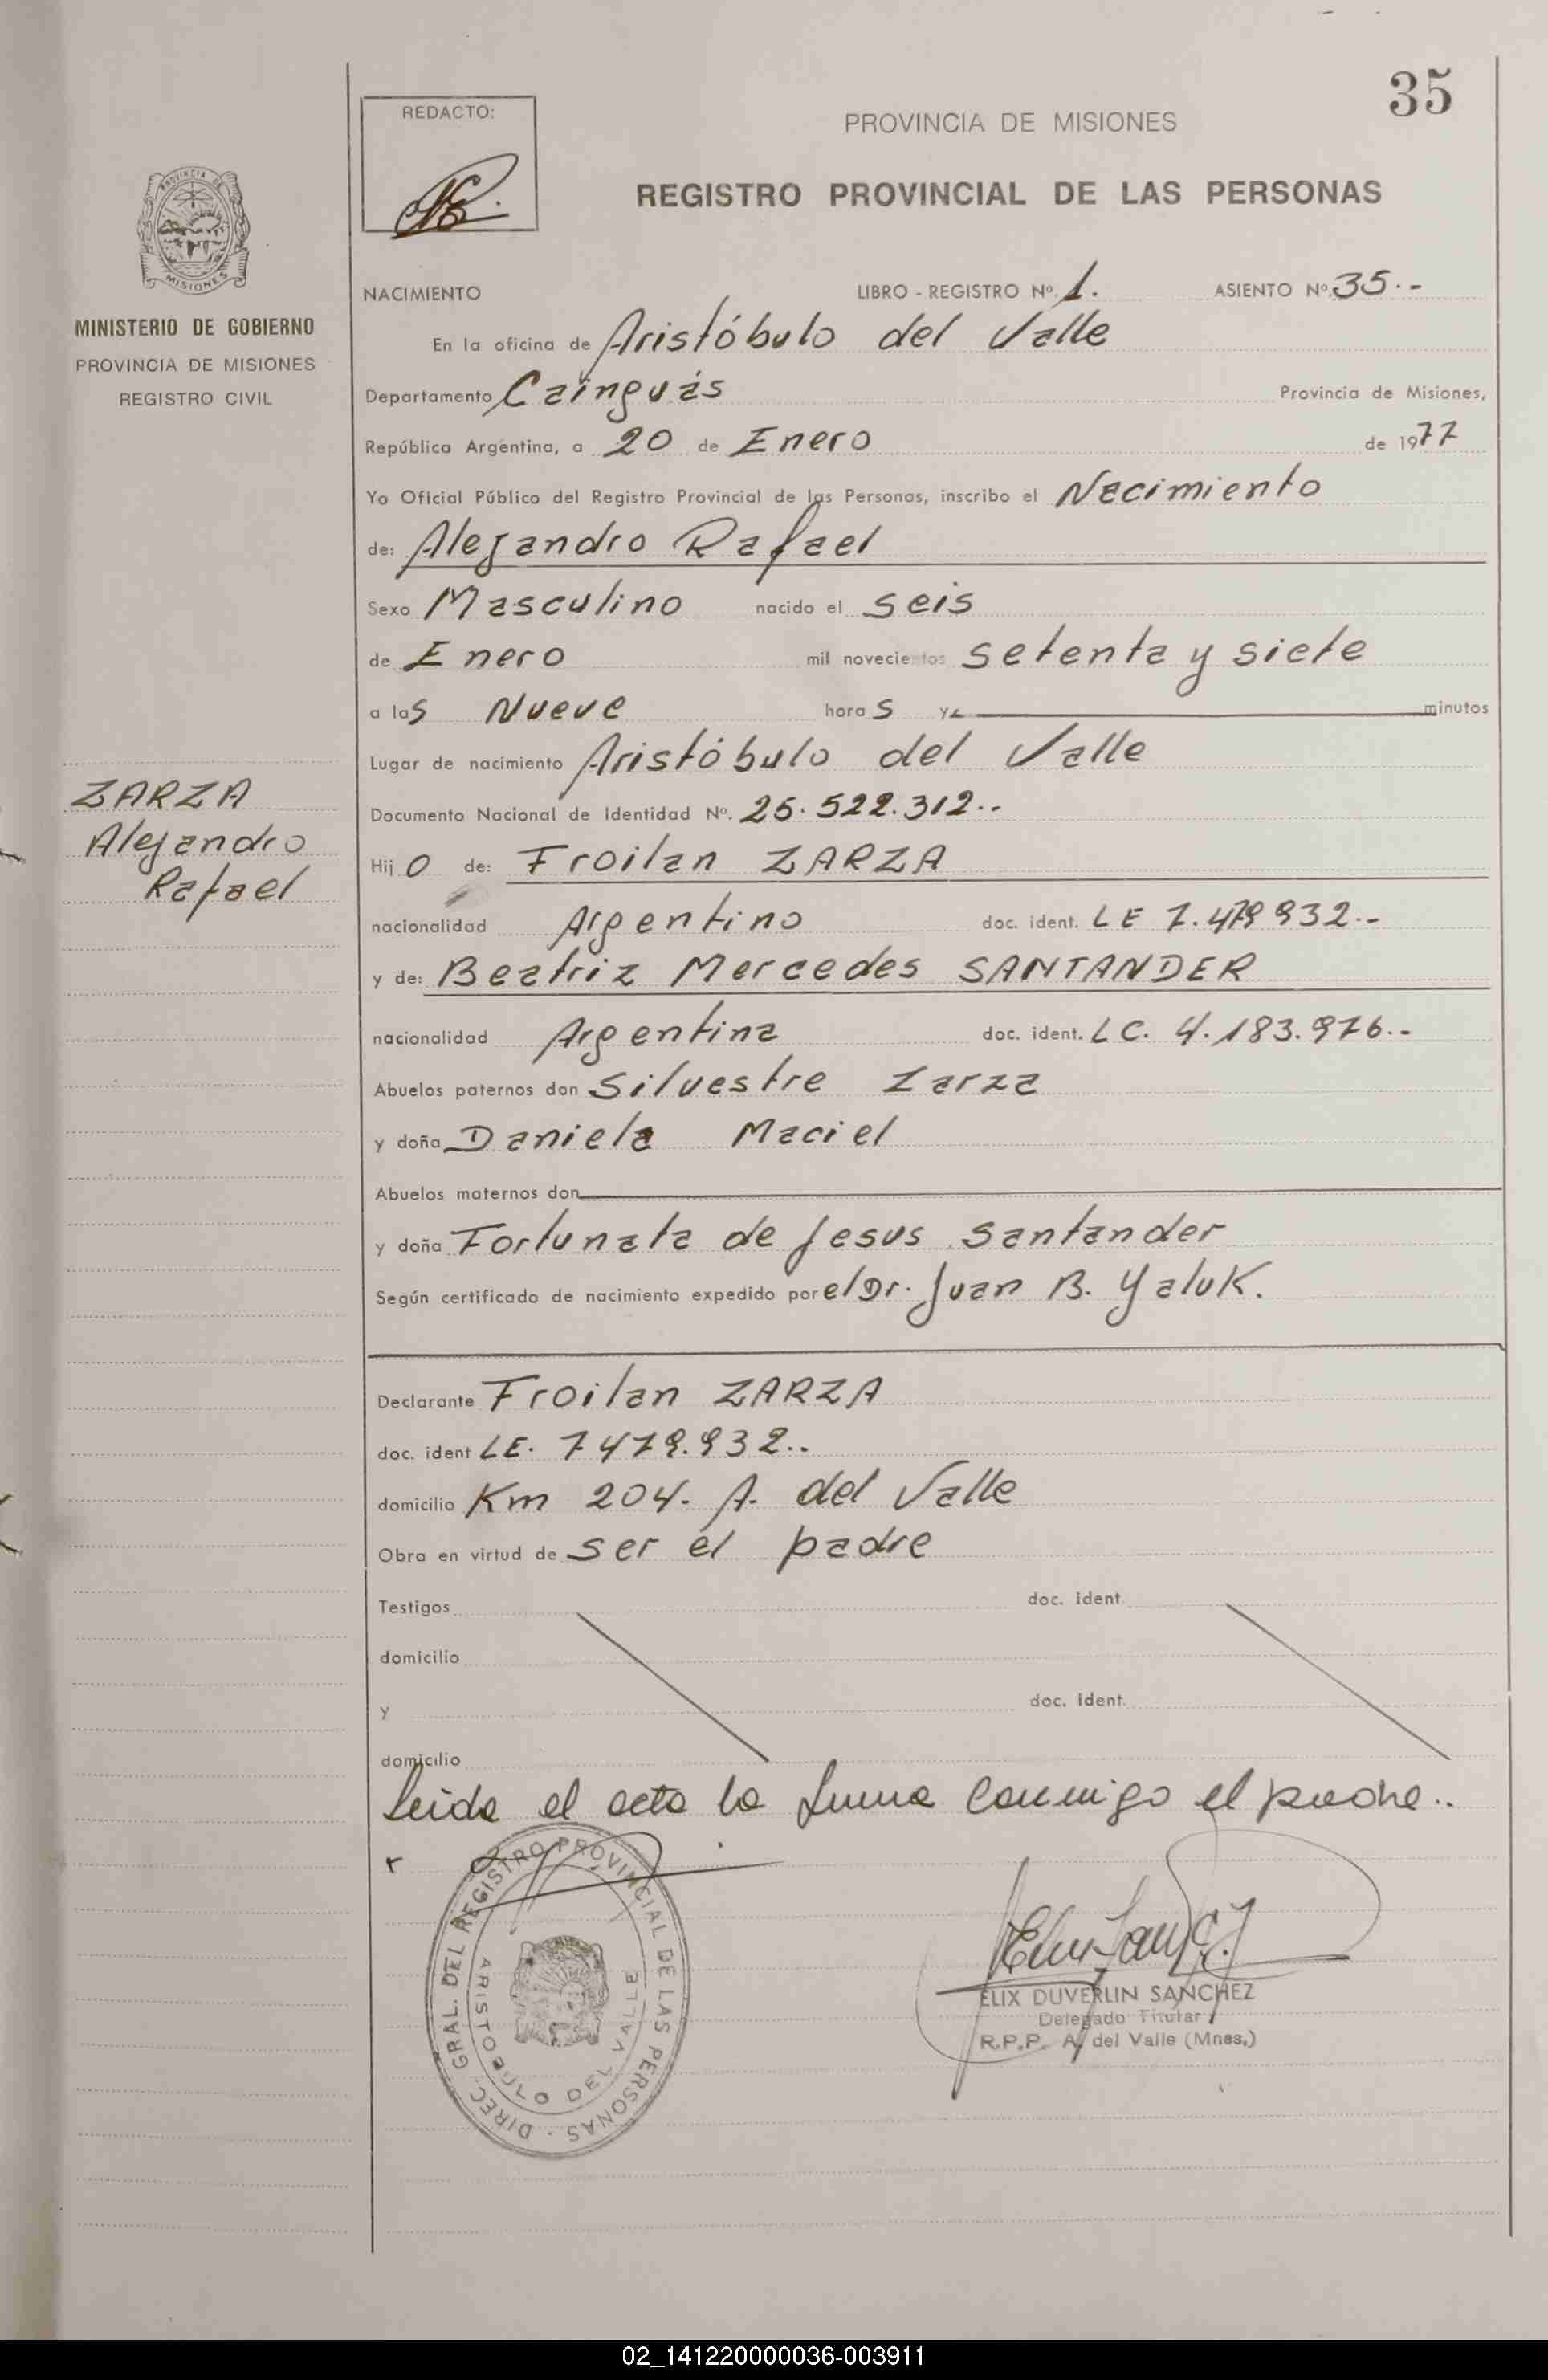 35
REDACTO:
PROVINCIA DE MISIONES
REGISTRO PROVINCIAL DE LAS PERSONAS
PROVINCIA DE
MISIONES
MINISTERIO DE GOBIERNO
PROVINCIA DE MISIONES
REGISTRO CIVIL
NACIMIENTO LIBRO - REGISTRO Nº. 1. ASIENTO Nº. 35.-
En la oficina de Aristóbulo del Valle
Departamento Cainguás Provincia de Misiones,
República Argentina, a 20 de Enero de 1977
Yo Oficial Público del Registro Provincial de las Personas, inscribo el Nacimiento
de: Alejandro Rafael
Sexo Masculino nacido el seis
de Enero mil novecientos setenta y siete
a las Nueve horas y minutos
Lugar de nacimiento Aristóbulo del Valle
ZARZA
Alejandro
Rafael
Documento Nacional de Identidad Nº. 25.522.312.-
Hijo de: Froilan ZARZA
nacionalidad Argentino doc. ident. LE 7.479932.-
y de: Beatriz Mercedes SANTANDER
nacionalidad Argentina doc. ident. LC. 4.183.976.-
Abuelos paternos don Silvestre Zarza
y doña Daniela Maciel
Abuelos maternos don
y doña Fortunata de Jesus Santander
Según certificado de nacimiento expedido por el Dr. Juan B. Yaluk.
Declarante Froilan ZARZA
doc. ident LE. 7479.932..
domicilio Km 204. A. del Valle
Obra en virtud de ser el padre
Testigos doc. ident.
domicilio
y doc. ident.
domicilio
Leida el acta la firma conmigo el padre..
DIREC. GRAL. DEL REGISTRO PROVINCIAL DE LAS PERSONAS -
ARISTOBULO DEL VALLE
ELIX DUVERLIN SANCHEZ
Delegado Titular
R.P.P. A. del Valle (Mnes.)
02_141220000036-003911